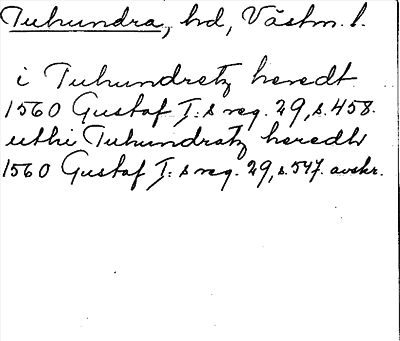 Tuhundra, hd, Västm. l.
i Tuhundretz heredt
1560 Gustaf I:s reg. 29, s. 458.
uthi Tuhundratz heredh
1560 Gustaf I:s reg. 29, s. 547. avskr.